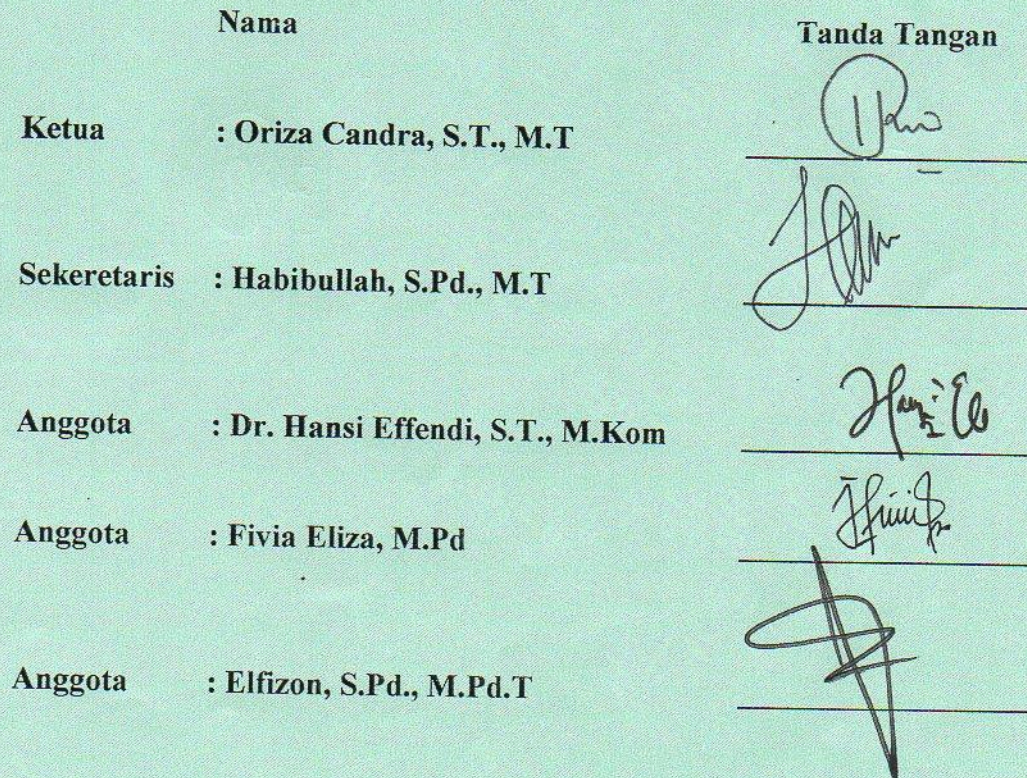 Nama Tanda Tangan
Ketua : Oriza Candra, S.T., M.T
Sekeretaris : Habibullah, S.Pd., M.T
Anggota : Dr. Hansi Effendi, S.T., M.Kom
Anggota : Fivia Eliza, M.Pd
Anggota : Elfizon, S.Pd., M.Pd.T